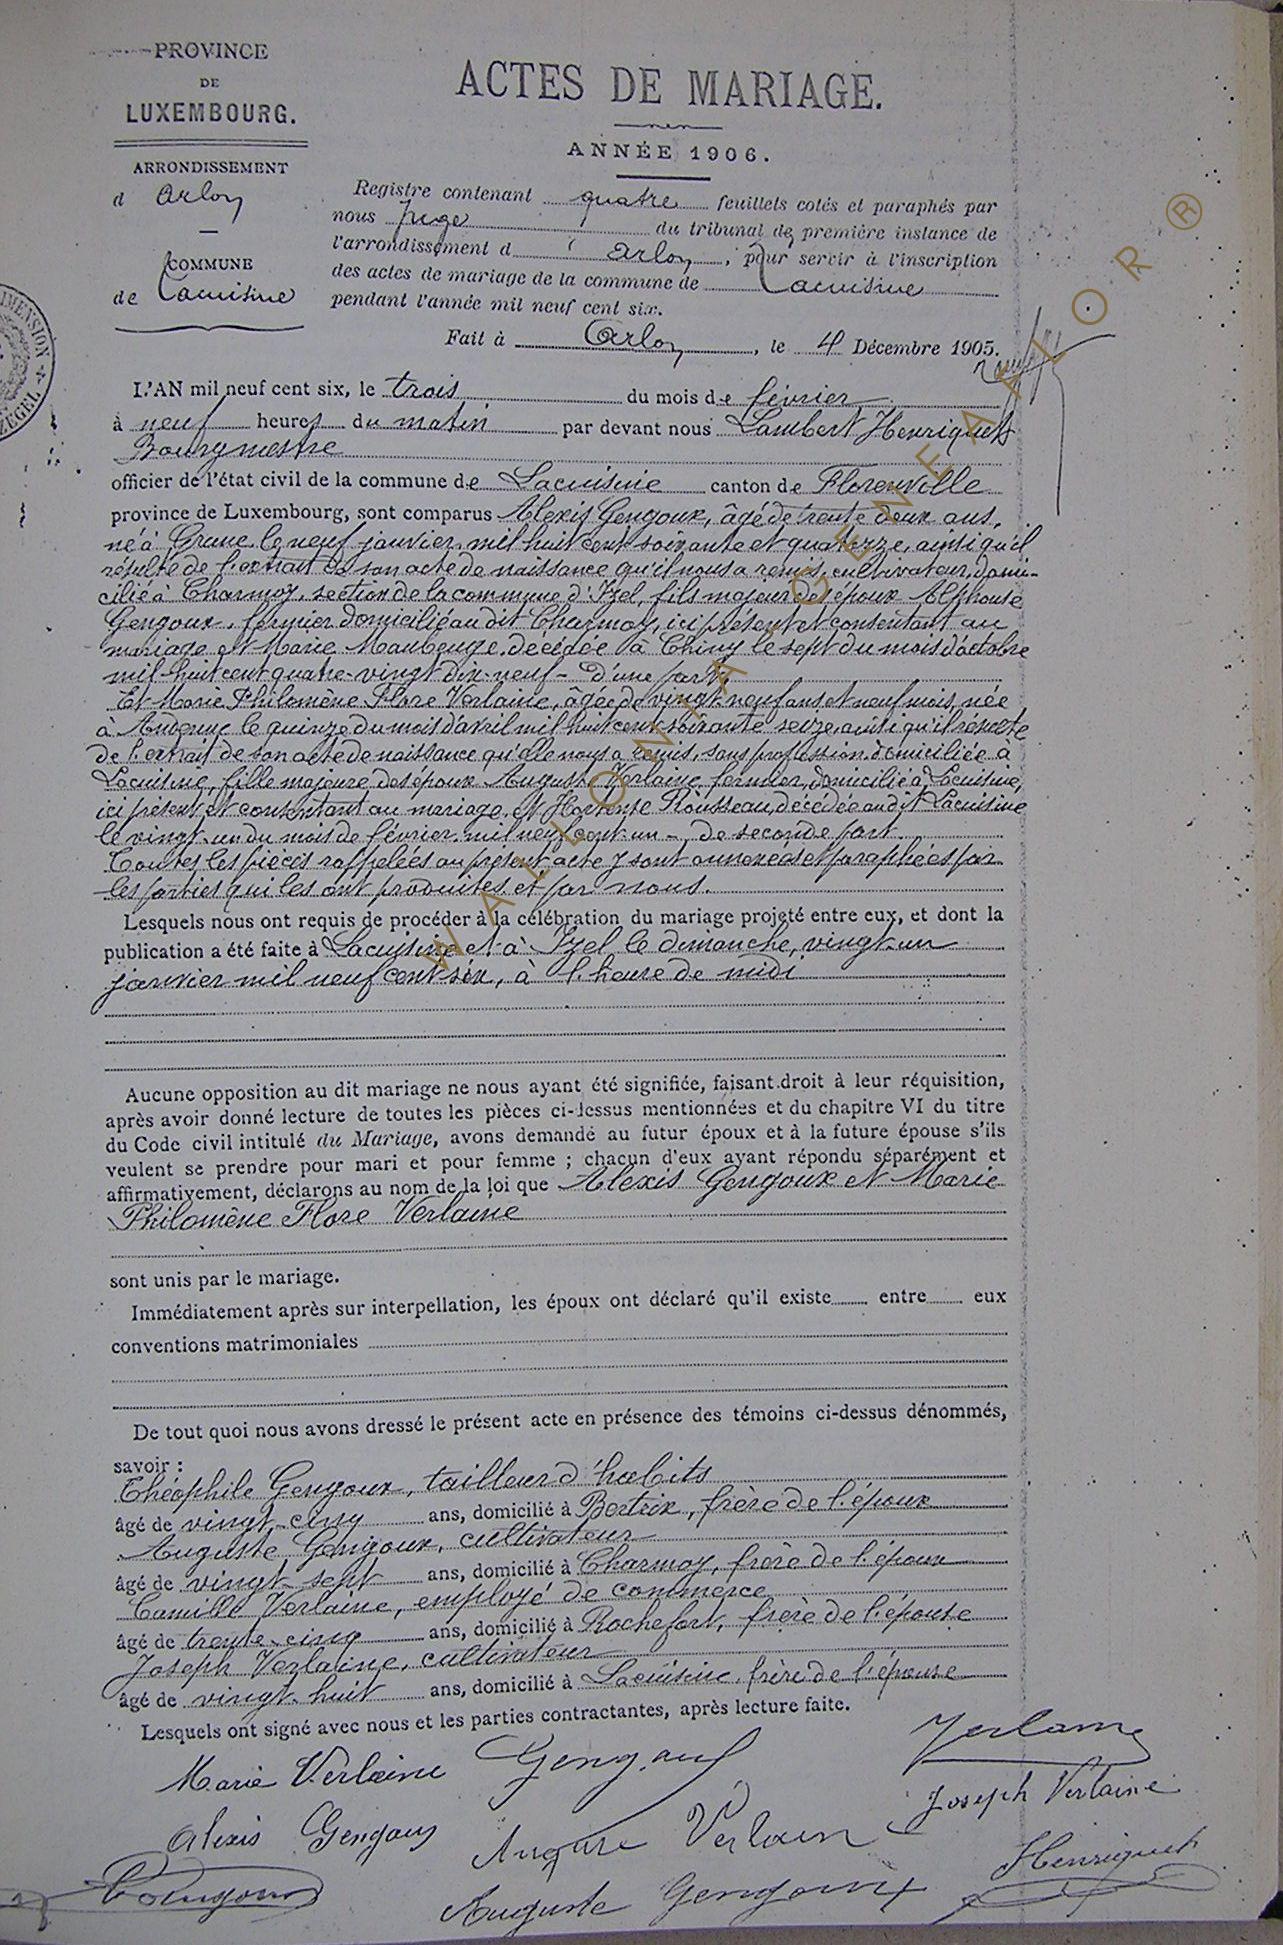 PROVINCE
DE
LUXEMBOURG.
ARRONDISSEMENT
d Arlon
COMMUNE
de Lacuisine
ACTES DE MARIAGE.
ANNÉE 1906.
Registre contenant quatre feuillets cotés et paraphés par
nous Juge du tribunal de première instance de
l'arrondissement d' Arlon, pour servir à l'inscription
des actes de mariage de la commune de Lacuisine
pendant l'année mil neuf cent six.
Fait à Arlon, le 4 Décembre 1905.
L'AN mil neuf cent six, le trois du mois de février
à neuf heures du matin par devant nous Lambert Henriquet
Bourgmestre
officier de l'état civil de la commune de Lacuisine canton de Florenville
province de Luxembourg, sont comparus Alexis Gengoux, âgé de trente deux ans,
né à Graue le neuf janvier mil huit cent soixante et quatorze, ainsi qu'il
résulte de l'extrait de son acte de naissance qu'il nous a remis, cultivateur, domi-
cilié à Charmoy, section de la commune d'Izel, fils majeur des époux Alphonse
Gengoux, fermier domicilié au dit Charmoy, ici présent et consentant au
mariage et Marie Maubeuge, décédée à Chiny le sept du mois d'octobre
mil huit cent quatre-vingt dix-neuf - D'une part,
Et Marie Philomène Flore Verlaine, âgée de vingt-neuf ans et neuf mois, née
à Andenne le quinze du mois d'avril mil huit cent soixante seize, ainsi qu'il résulte
de l'extrait de son acte de naissance qu'elle nous a remis, sans profession, domiciliée à
Lacuisine, fille majeure des époux Auguste Verlaine, fermier, domicilié à Lacuisine,
ici présent et consentant au mariage, et Hortense Rousseau, décédée au dit Lacuisine
le vingt-un du mois de février mil neuf cent un - de seconde part.
Toutes les pièces rappelées au présent acte y sont annexées et paraphées par
les parties qui les ont produites et par nous.
Lesquels nous ont requis de procéder à la célébration du mariage projeté entre eux, et dont la
publication a été faite à Lacuisine et à Izel le dimanche, vingt-un
janvier mil neuf cent six, à l'heure de midi
Aucune opposition au dit mariage ne nous ayant été signifiée, faisant droit à leur réquisition,
après avoir donné lecture de toutes les pièces ci-dessus mentionnées et du chapitre VI du titre
du Code civil intitulé du Mariage, avons demandé au futur époux et à la future épouse s'ils
veulent se prendre pour mari et pour femme ; chacun d'eux ayant répondu séparément et
affirmativement, déclarons au nom de la loi que Alexis Gengoux et Marie
Philomène Flore Verlaine
sont unis par le mariage.
Immédiatement après sur interpellation, les époux ont déclaré qu'il existe entre eux
conventions matrimoniales
De tout quoi nous avons dressé le présent acte en présence des témoins ci-dessus dénommés,
savoir :
Théophile Gengoux, tailleur d'habits
âgé de vingt-cinq ans, domicilié à Bertrix, frère de l'époux
Auguste Gengoux, cultivateur
âgé de vingt-sept ans, domicilié à Charmoy, frère de l'époux
Camille Verlaine, employé de commerce
âgé de trente-cinq ans, domicilié à Rochefort, frère de l'épouse
Joseph Verlaine, cultivateur
âgé de vingt-huit ans, domicilié à Lacuisine, frère de l'épouse
Lesquels ont signé avec nous et les parties contractantes, après lecture faite.
Marie Verlaine Gengoux Verlaine
Joseph Verlaine
Alexis Gengoux Auguste Verlaine
Henriquet
Gengoux
Auguste Gengoux
WALLONIA GENEALOR ®